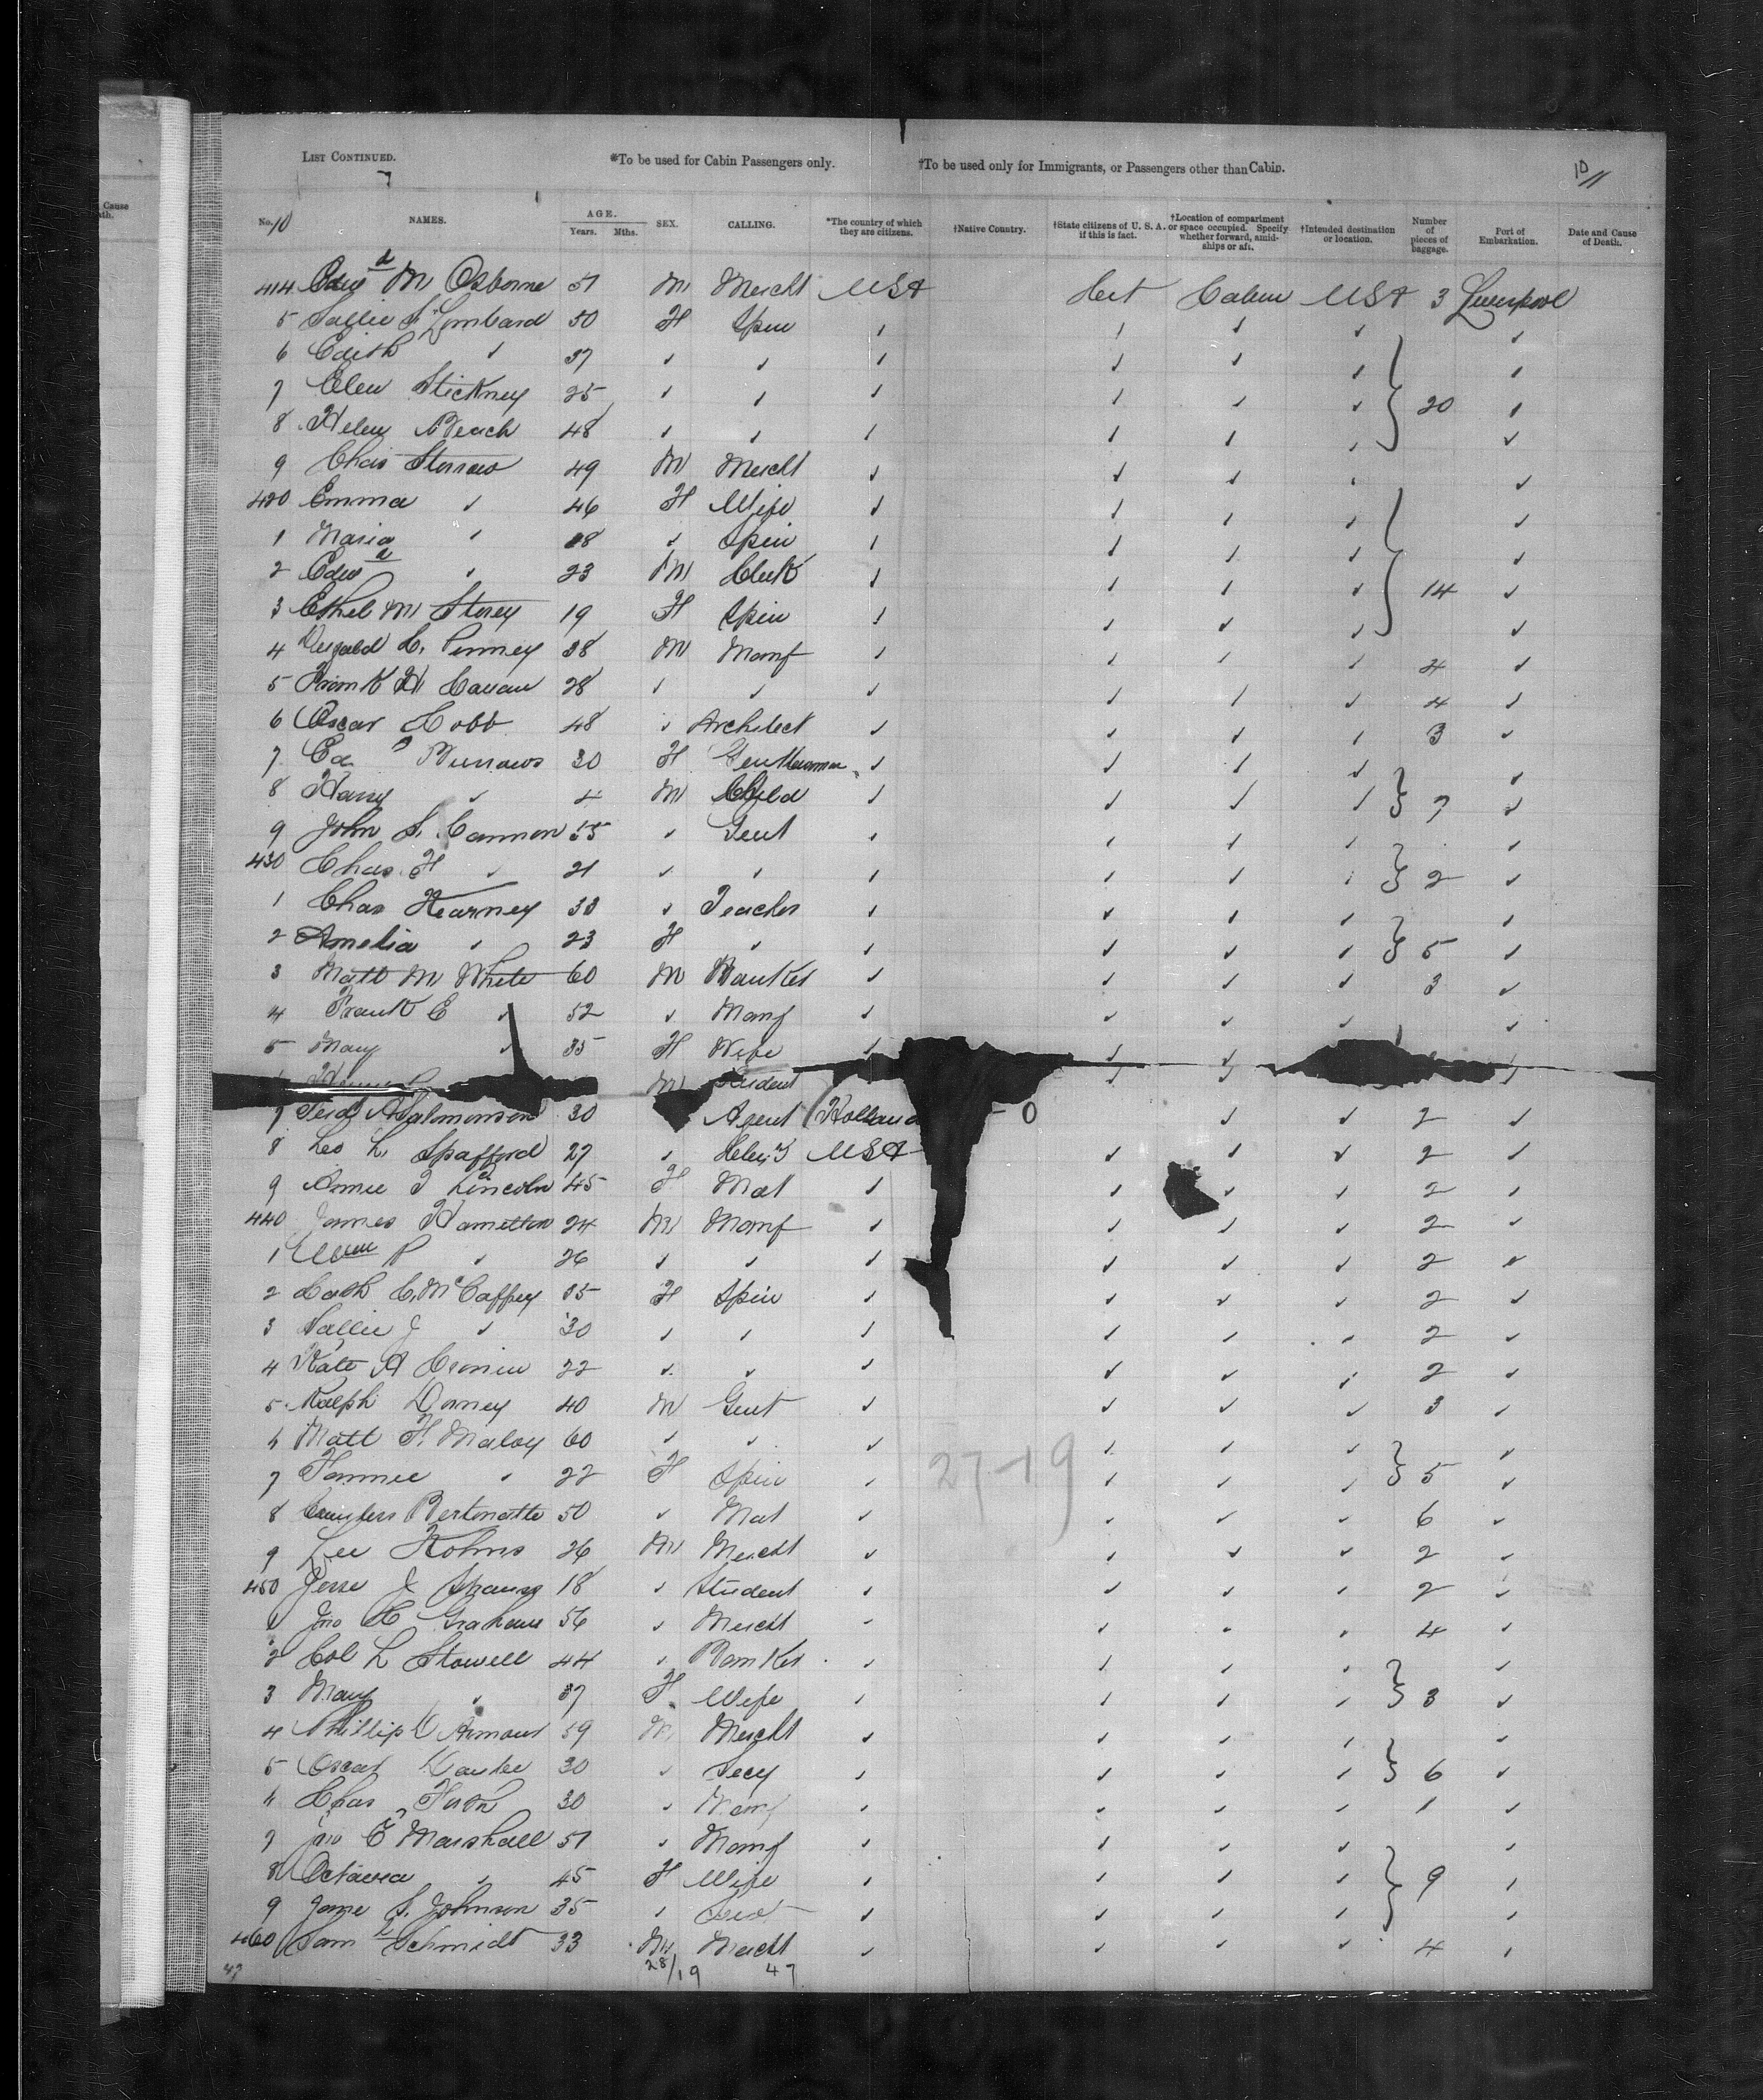 Cause
ath.
LIST CONTINUED. *To be used for Cabin Passengers only. †To be used only for Immigrants, or Passengers other than Cabin. 10/11
No. 10 NAMES. AGE. Years. Mths. SEX. CALLING. *The country of which they are citizens. †Native Country. †State citizens of U. S. A. if this is fact. †Location of compartment or space occupied. Specify whether forward, amidships or aft. †Intended destination or location. Number of pieces of baggage. Port of Embarkation. Date and Cause of Death.
414 Edwd M Osborne 51 M Mercht USA Cabin USA 3 Liverpool
5 Sallie S Lombard 50 F Spin ✓ ✓ ✓ ✓ ✓
6 Edith ✓ 37 ✓ ✓ ✓ ✓ ✓ ✓ ✓
7 Ellen Stickney 25 ✓ ✓ ✓ ✓ ✓ ✓ 20 ✓
8 Helen Beach 48 ✓ ✓ ✓ ✓ ✓ ✓ ✓
9 Chas Storrow 49 M Mercht ✓ ✓ ✓ ✓ ✓
420 Emma ✓ 46 F Wife ✓ ✓ ✓ ✓ ✓
1 Maria ✓ 28 ✓ Spin ✓ ✓ ✓ ✓ ✓
2 Edwd ✓ 23 M Clerk ✓ ✓ ✓ ✓ 14 ✓
3 Ethel M Storey 19 F Spin ✓ ✓ ✓ ✓ ✓
4 C. Penney 38 M Manf ✓ ✓ ✓ ✓ 4 ✓
5 Frank H 28 ✓ ✓ ✓ ✓ ✓ ✓ 4 ✓
6 Oscar Cobb 48 ✓ Architect ✓ ✓ ✓ ✓ 3 ✓
7 Ed Burrows 30 F Gentlewoman ✓ ✓ ✓ ✓ ✓
8 Harry ✓ 4 M Child ✓ ✓ ✓ ✓ 7 ✓
9 John S. Cannon 55 ✓ Gent ✓ ✓ ✓ ✓ ✓
430 Chas F ✓ 21 ✓ ✓ ✓ ✓ ✓ ✓ 2 ✓
1 Chas Kearney 33 ✓ Teacher ✓ ✓ ✓ ✓ ✓
2 Amelia ✓ 23 F ✓ ✓ ✓ ✓ ✓ 5 ✓
3 Matt M White 60 M Banker ✓ ✓ ✓ ✓ 3 ✓
4 Frank E ✓ 52 ✓ Manf ✓ ✓ ✓ ✓ ✓
5 Mary ✓ 35 F Wife ✓ ✓ ✓ ✓
M Student ✓ ✓ ✓
7 Ferd A Salmonson 30 Agent Holland - 0 ✓ ✓ 2 ✓
8 Leo L. Spafford 27 ✓ USA ✓ ✓ ✓ 2 ✓
9 Annie T Lincoln 45 F Mat ✓ ✓ ✓ ✓ 2 ✓
440 James Hamilton 24 M Manf ✓ ✓ ✓ ✓ 2 ✓
1 Wm P ✓ 26 ✓ ✓ ✓ ✓ ✓ ✓ 2 ✓
2 Cath C. McCaffrey 35 F Spin ✓ ✓ ✓ ✓ 2 ✓
3 Sallie J ✓ 30 ✓ ✓ ✓ ✓ ✓ ✓ 2 ✓
4 Kate A Cronin 22 ✓ ✓ ✓ ✓ ✓ ✓ 2 ✓
5 Ralph Dorney 40 M Gent ✓ ✓ ✓ ✓ 3 ✓
6 Matt F. Maloy 60 ✓ ✓ ✓ ✓ ✓ ✓ ✓
7 Fannie ✓ 22 F Spin ✓ 27-19 ✓ ✓ ✓ 5 ✓
8 Bertinatti 50 ✓ Mat ✓ ✓ ✓ ✓ 6 ✓
9 Lee Kohns 26 M Mercht ✓ ✓ ✓ ✓ 2 ✓
450 Jesse J Strauss 18 ✓ Student ✓ ✓ ✓ ✓ 2 ✓
1 Jno H Graham 56 ✓ Mercht ✓ ✓ ✓ ✓ 4 ✓
2 Col L Stowell 44 ✓ Banker ✓ ✓ ✓ ✓ ✓
3 Mary ✓ 37 F Wife ✓ ✓ ✓ ✓ 3 ✓
4 Phillip D Armour 59 M Mercht ✓ ✓ ✓ ✓
5 Oscar 30 ✓ Secy ✓ ✓ ✓ ✓ 6 ✓
6 Chas Furth 30 ✓ Manf ✓ ✓ ✓ ✓ 1 ✓
7 Jno E Marshall 51 ✓ Manf ✓ ✓ ✓ ✓ ✓
8 Octavia ✓ 45 F Wife ✓ ✓ ✓ ✓ 9 ✓
9 Jane S. Johnson 35 ✓ ✓ ✓ ✓ ✓ ✓
460 Sam L Schmidt 33 M Mercht ✓ ✓ ✓ ✓ 4 ✓
47 28/19 47